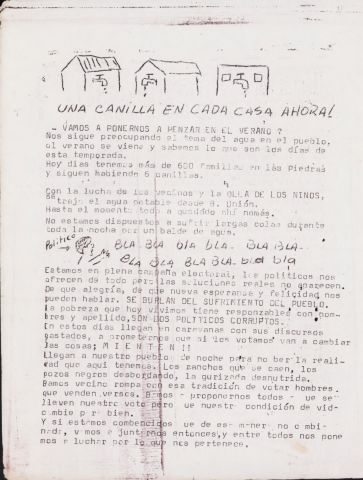 UNA CANILLA EN CADA CASA AHORA!
- VAMOS A PONERNOS A PENZAR EN EL VERANO ?
Nos sigue preocupando el tema del agua en el pueblo,
el verano se viene y sabemos lo que son los días de
esta temporada.
Hoy dias tenemos más de 600 familias en lás Piedras
y siguen habiendo 6 canillas.
Con la lucha de los vecinos y la OLLA DE LOS NINOS,
se trajo el agua potable desde B. Unión.
Hasta el momento todo a quedado ahí nomás.
No estamos dispuestos a sufrir largas colas durante
toda la noche por un balde de agua.
Politico BLA-BLA bla bla- BLA BLA-
BLA BLA BLA-BLA.bla bla
Estamos en plena campaña electoral, los politicos nos
ofrecen de todo pero las soluciones reales no aparecen.
De que alegría, de que nueva esperanza y felicidad nos
pueden hablar. SE BURLAN DEL SUFRIMIENTO DEL PUEBLO.
la pobreza que hoy vivimos tiene responzables con nom-
bres y apellido, SON LOS POLITICOS CORRUPTOS.
En estos días llegan en caravanas con sus discursos
gastados, a prometernos que si los votamos van a cambiar
las cosas; M I E N T E N !!
Llegan a nuestro pueblo de noche para no ber la reali-
dad que aquí tenemos. Los ranchos que se caen, los
pozos negros desbordando, la gurizada desnutrida.
Bamos vecino rompa con esa tradición de votar hombres.
que venden versos. Bamos a proponernos todos que se
lleven nuestro voto pero que nuestra condición de vid-
cambie por bien.
Y si estamos combencidos que de esa manera no cambi-
nada, vamos a juntarnos entonces, y entre todos nos pone
mos a luchar por lo que nos pertenece.